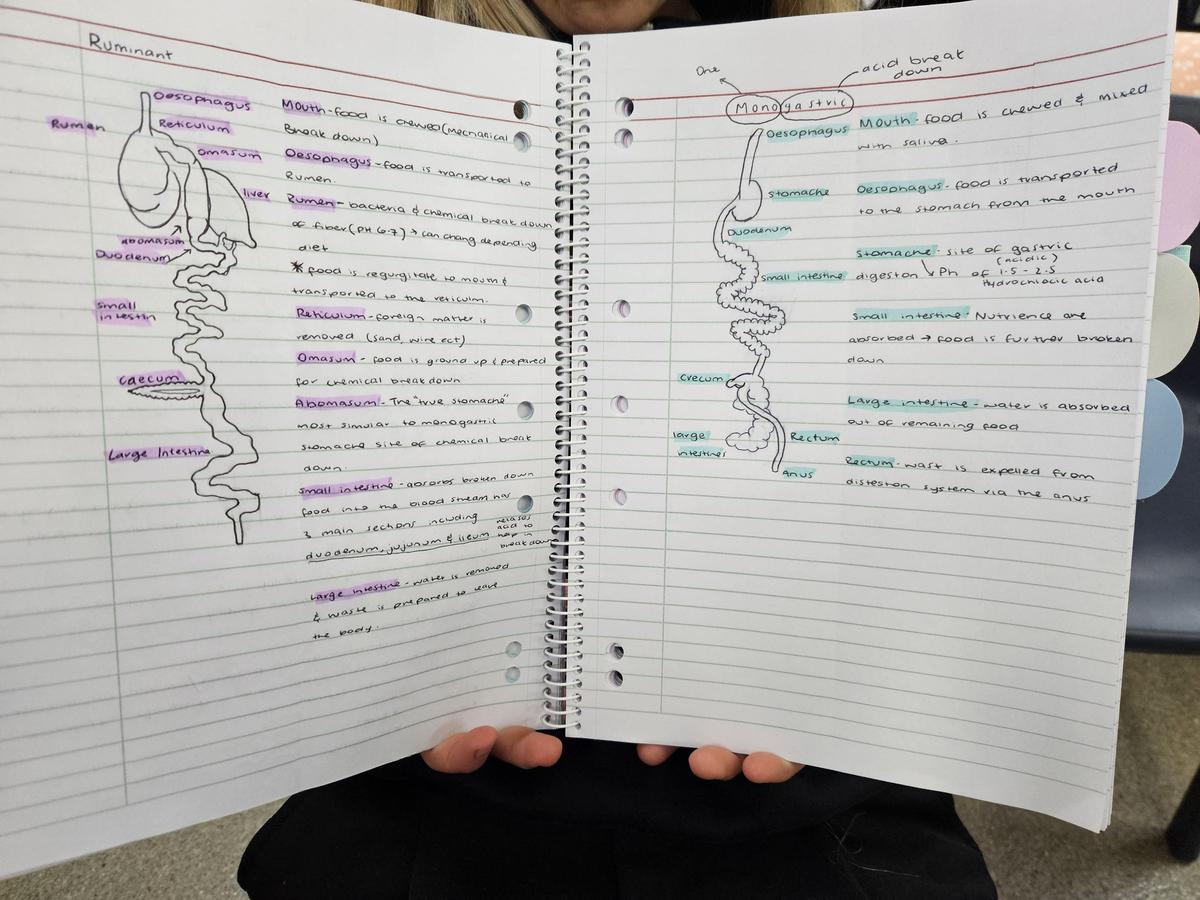 Ruminant
Oesophagus
Rumen
Reticulum
omasum
liver
abomasum
Duodenum
small
intestin
caecum
Large Intestine
Mouth - food is chewed (mechanical
Break down)
Oesophagus - food is transported to
Rumen.
Rumen - bacteria & chemical break down
of fiber (PH 6-7) → can chang depending
diet
* food is regurgitate to mouth &
transported to the reticulm.
Reticulum - foreign matter is
removed (sand, wire ect)
Omasum - food is ground up & prepared
for chemical break down
Abomasum - The "true stomache"
most simular to monogastric
stomache site of chemical break
down.
small intestine - absorbs broken down
food into the blood stream has
3 main sections including
duodenum, jujunum & ileum
releases
acid to
help in
break down
Large intestine - water is removed
& waste is prepared to leave
the body.
One
acid break
down
Monogastric
Oesophagus
stomache
Duodenum
small intestine
Crecum
large
intestines
Rectum
Anus
Mouth - food is chewed & mixed
with saliva.
Oesophagus - food is transported
to the stomach from the mouth
Stomache - site of gastric
(acidic)
digeston ↘ Ph of 1.5 - 2.5
Hydrochlocic acid
Small intestine - Nutrience are
absorbed → food is further broken
down
Large intestine - water is absorbed
out of remaining food
Rectum - wast is expelled from
disteston system via the anus